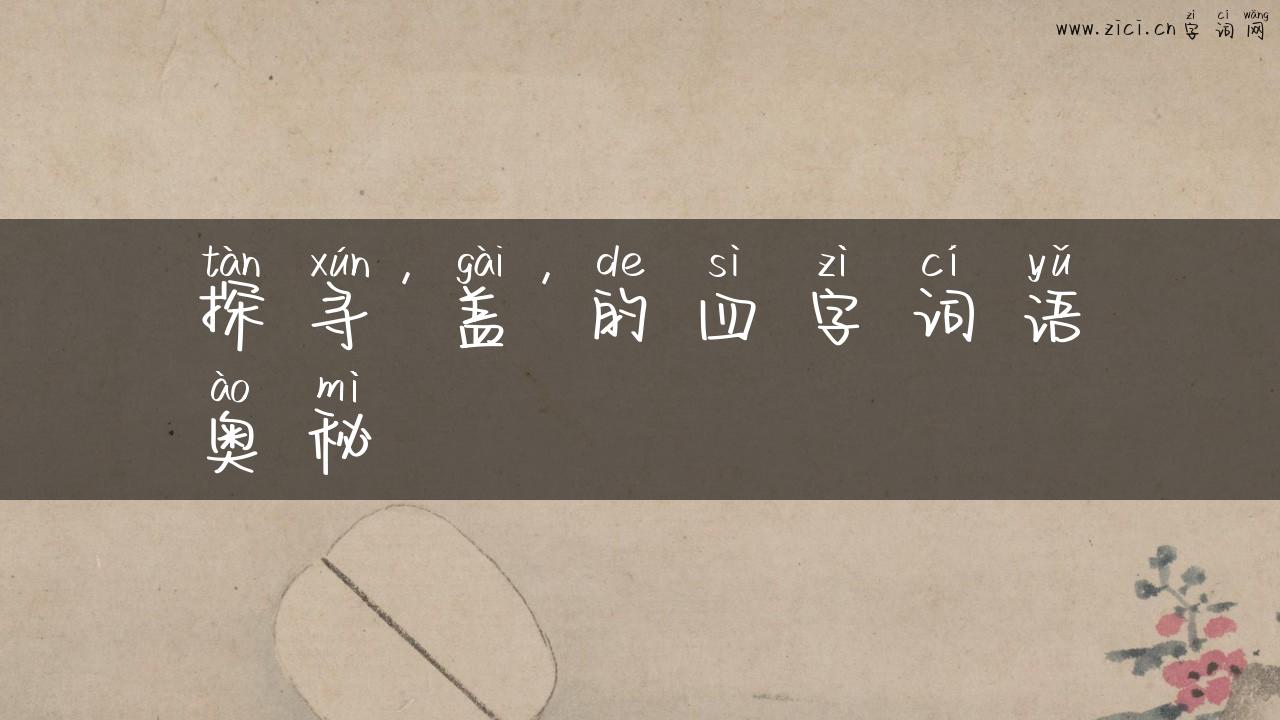 zì cí wǎng
www.zici.cn字词网
tàn xún , gài , de sì zì cí yǔ
探寻 盖 的四字词语
ào mì
奥秘